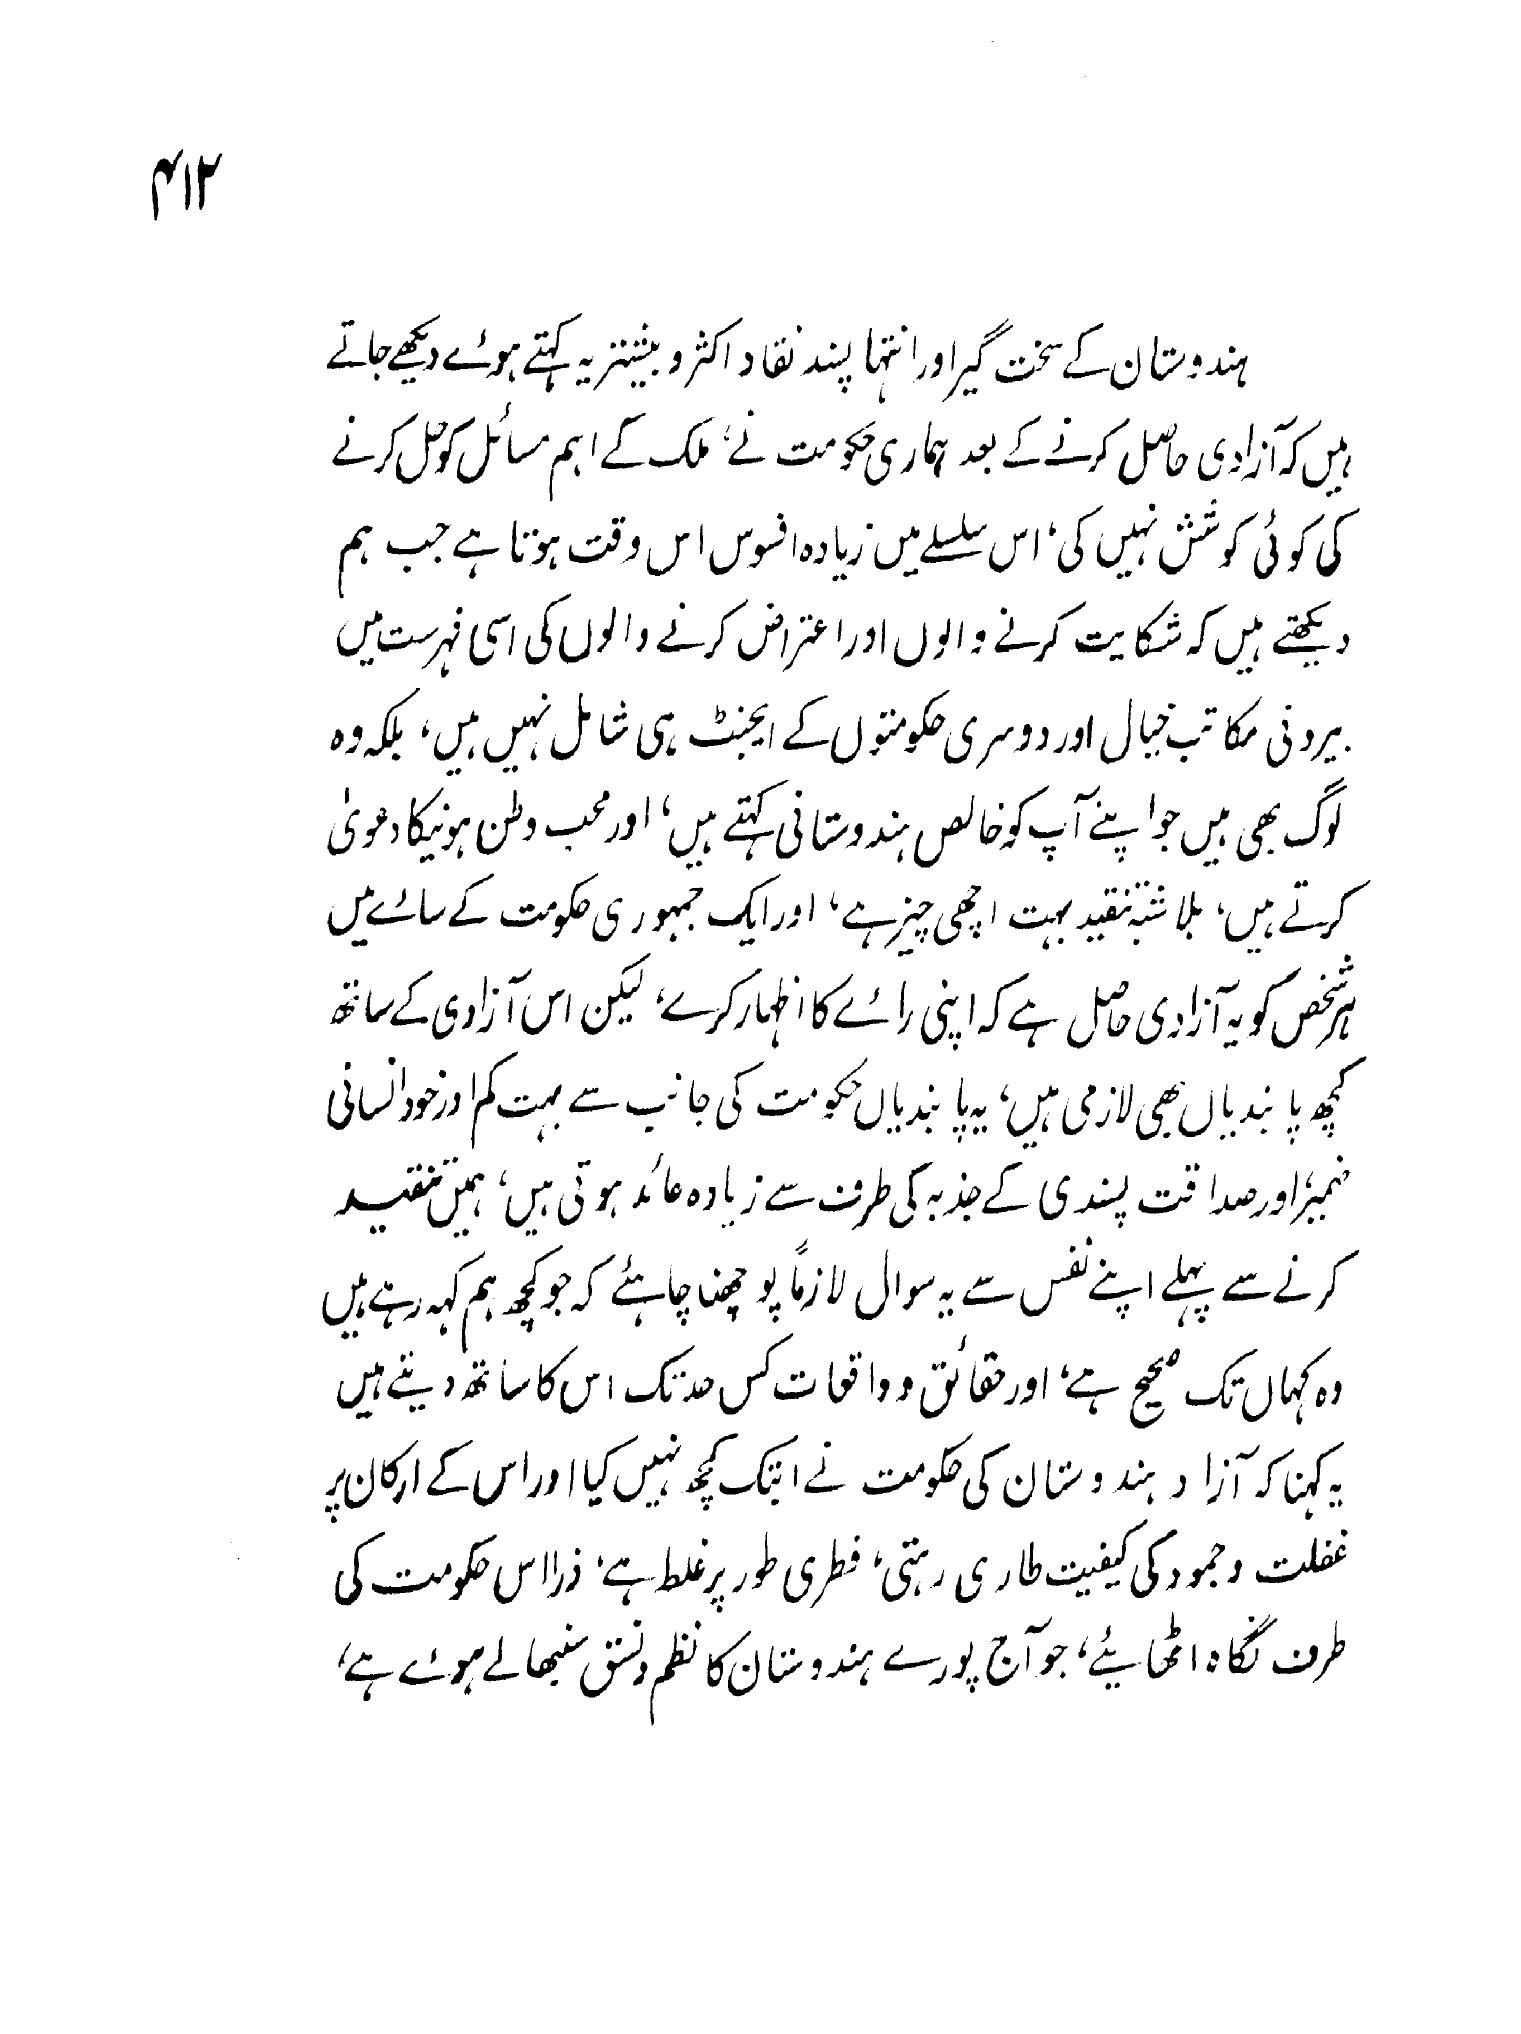 ۴۱۲
ہندوستان کے سخت گیر اور انتہا پسند نقاد اکثر و بیشتر یہ کہتے ہوئے دیکھے جاتے
ہیں کہ آزادی حاصل کرنے کے بعد ہماری حکومت نے، ملک کے اہم مسائل کو حل کرنے
کی کوئی کوشش نہیں کی، اس سلسلے میں زیادہ افسوس اس وقت ہوتا ہے جب ہم
دیکھتے ہیں کہ شکایت کرنے والوں اور اعتراض کرنے والوں کی اسی فہرست میں
بیرونی مکاتب خیال اور دوسری حکومتوں کے ایجنٹ ہی شامل نہیں ہیں، بلکہ وہ
لوگ بھی ہیں جو اپنے آپ کو خالص ہندوستانی کہتے ہیں، اور محب وطن ہونیکا دعویٰ
کرتے ہیں، بلا شبہ تنقید بہت اچھی چیز ہے، اور ایک جمہوری حکومت کے سائے میں
ہر شخص کو یہ آزادی حاصل ہے کہ اپنی رائے کا اظہار کرے، لیکن اس آزادی کے ساتھ
کچھ پابندیاں بھی لازمی ہیں، یہ پابندیاں حکومت کی جانب سے بہت کم اور خود انسانی
ضمیر، اور صداقت پسندی کے جذبہ کی طرف سے زیادہ عائد ہوتی ہیں، ہمیں تنقید
کرنے سے پہلے اپنے نفس سے یہ سوال لازماً پوچھنا چاہئے کہ جو کچھ ہم کہہ رہے ہیں
وہ کہاں تک صحیح ہے، اور حقائق و واقعات کس حد تک اس کا ساتھ دیتے ہیں
یہ کہنا کہ آزاد ہندوستان کی حکومت نے ابتک کچھ نہیں کیا اور اس کے ارکان پر
غفلت و جمود کی کیفیت طاری رہتی، فطری طور پر غلط ہے، ذرا اس حکومت کی
طرف نگاہ اٹھائیے، جو آج پورے ہندوستان کا نظم و نسق سنبھالے ہوئے ہے،